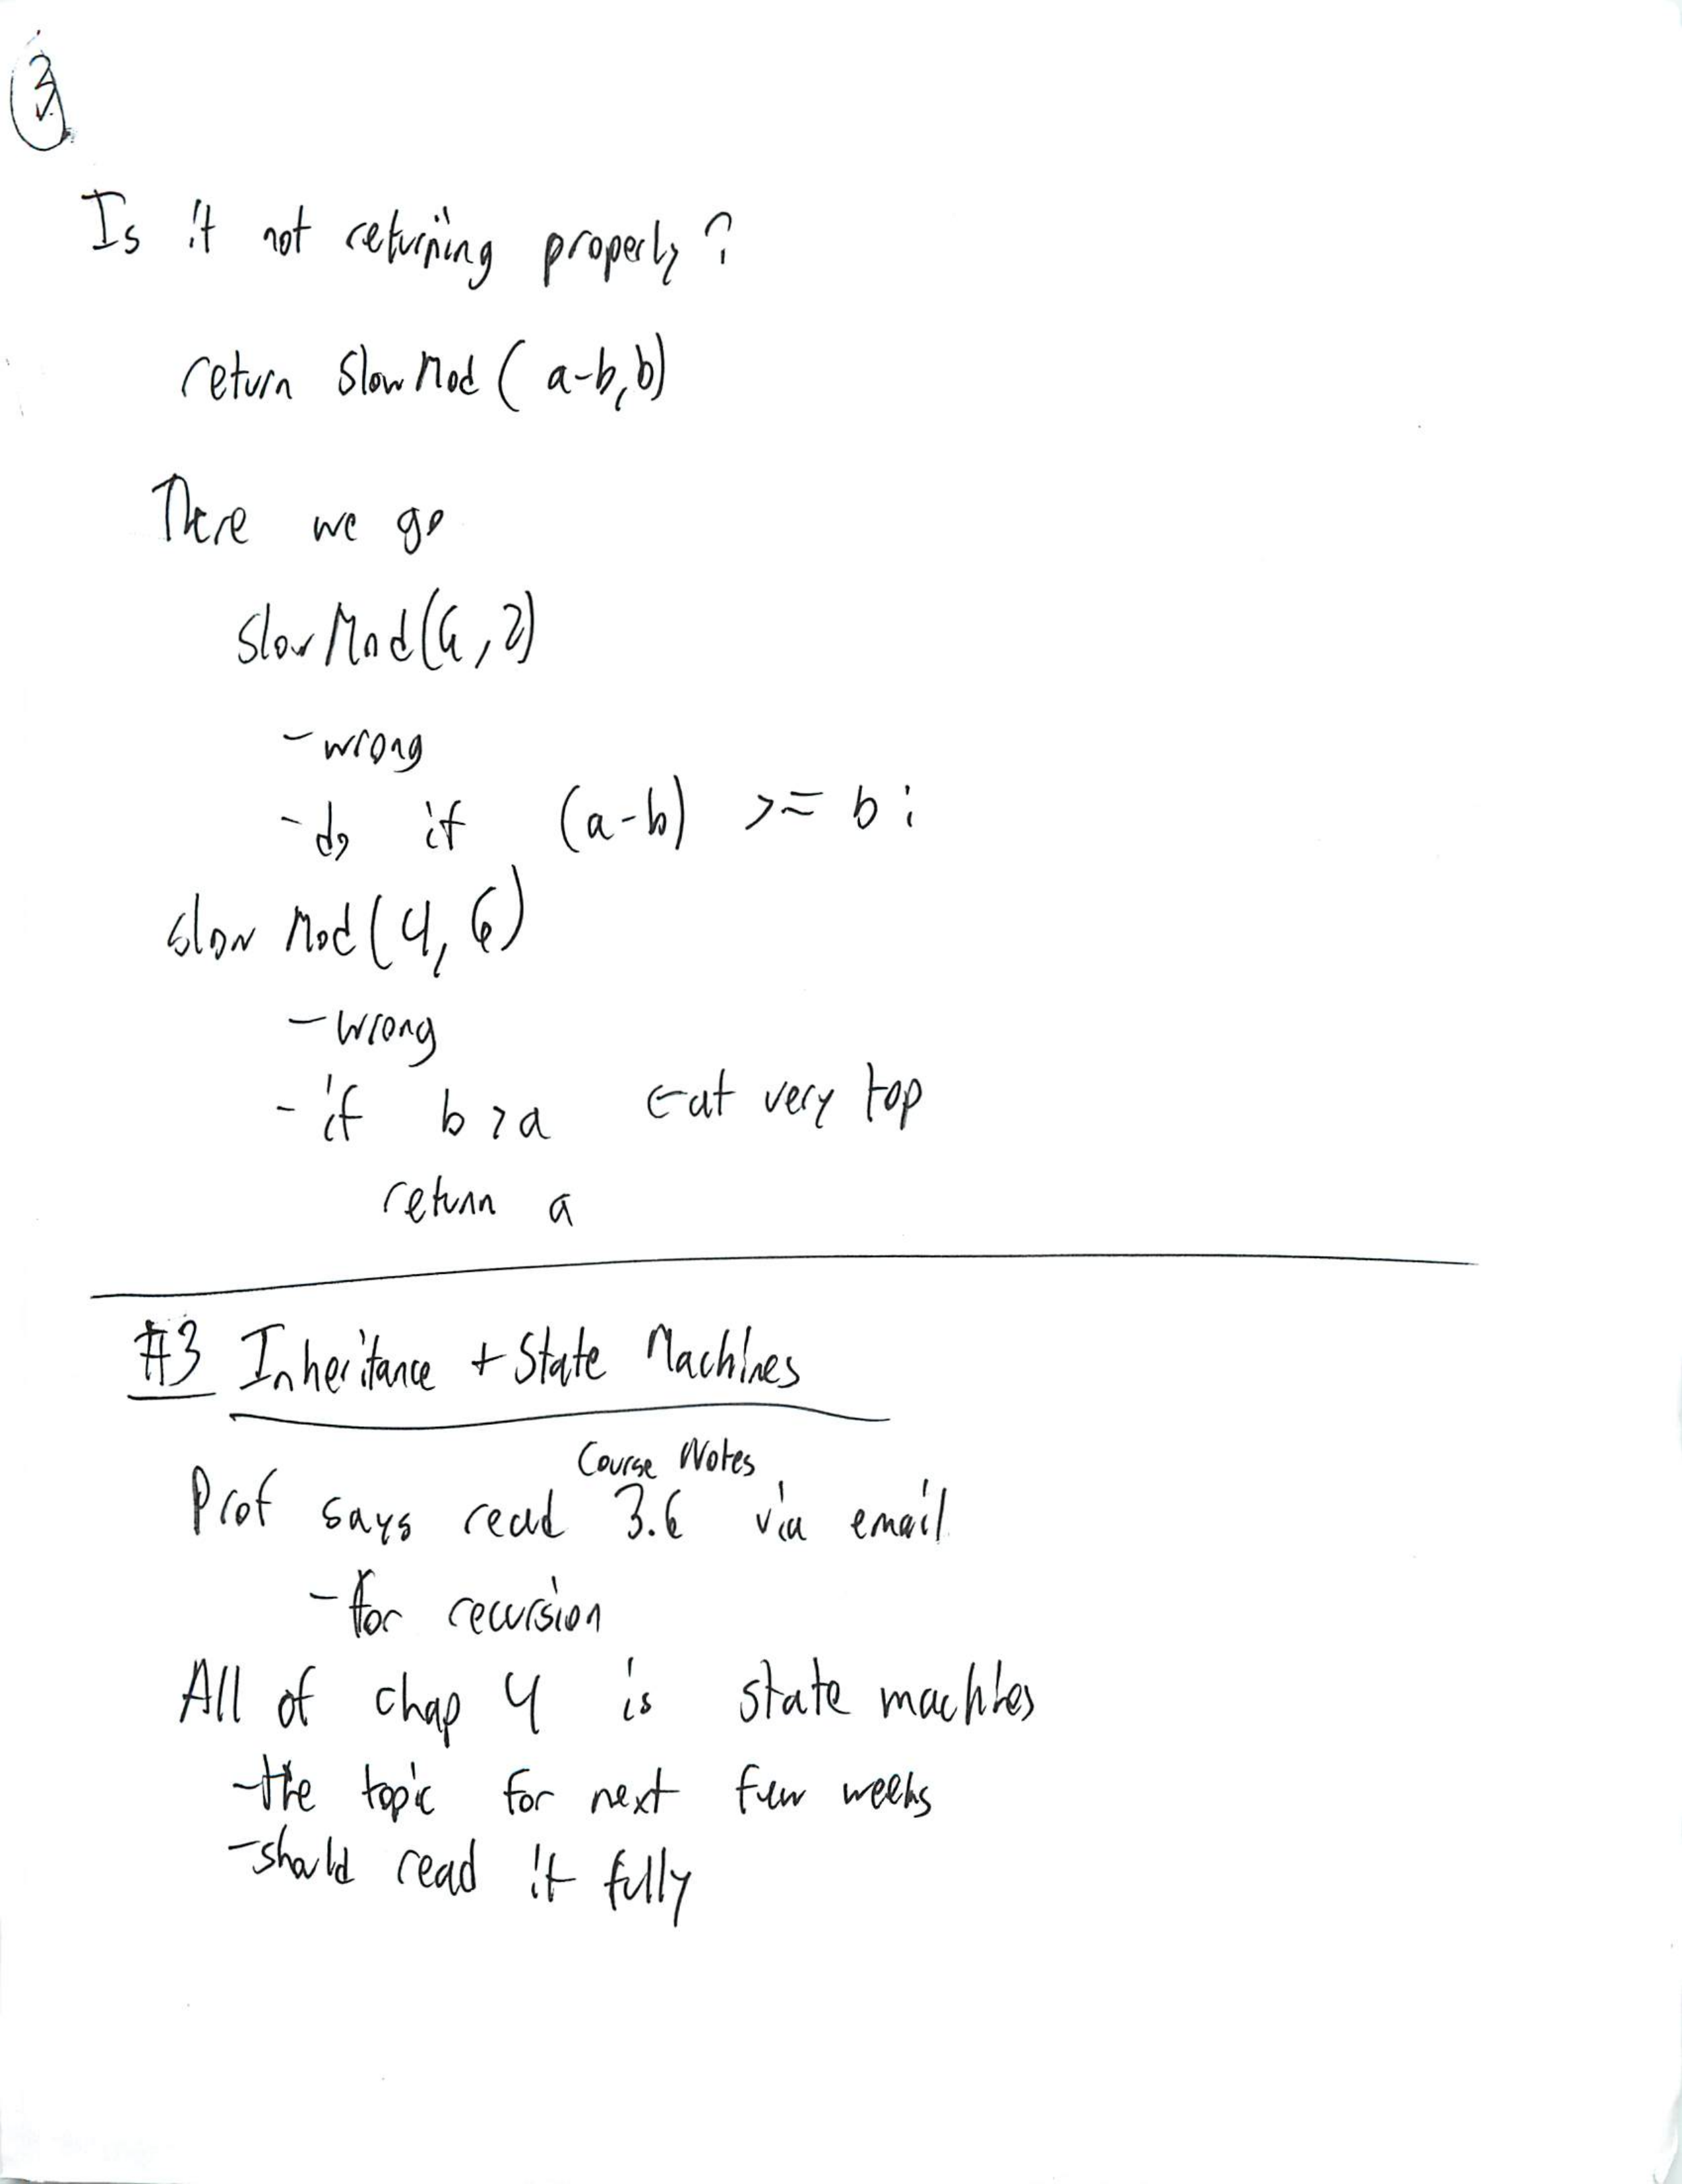 3
Is it not returning properly?
return SlowMod(a-b,b)
There we go
SlowMod(6,2)
- wrong
- do if (a-b) >= b:
slowMod(4,6)
- wrong
- if b>a ← at very top
return a
#3 Inheritance + State Machines
Course Notes
Prof says read 3.6 via email
- for recursion
All of chap 4 is state machines
- the topic for next few weeks
- should read it fully